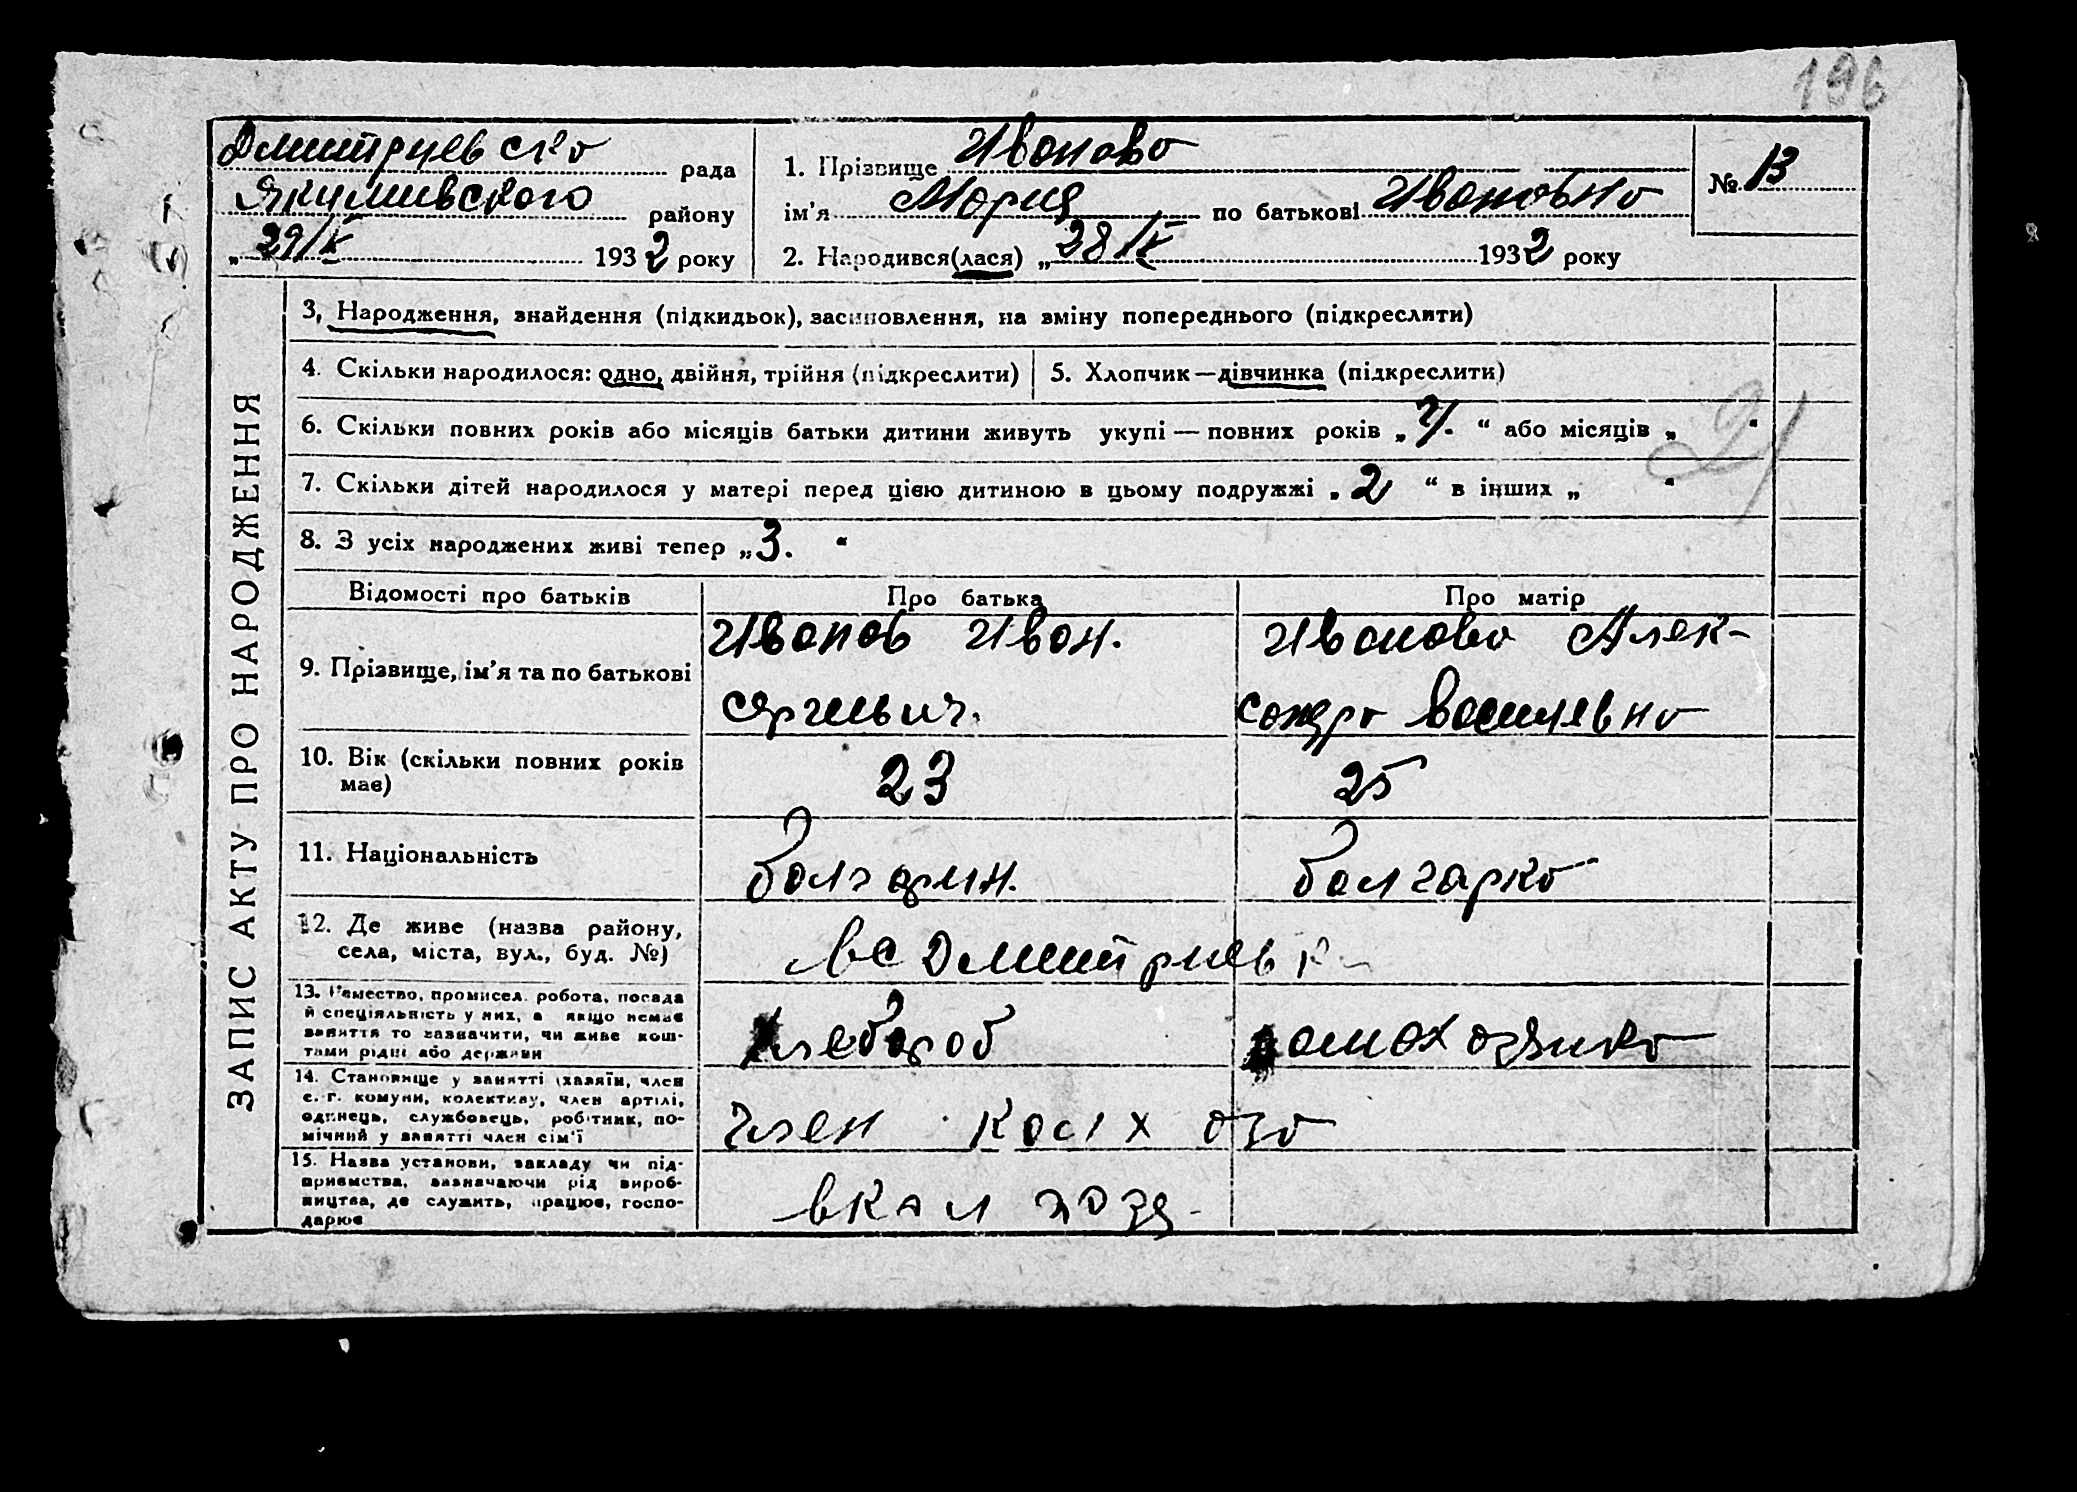 196
Дмитриевска рада
Якимивского району
„ 29/IV 1932 року
1. Прізвище Иванова
ім’я Мария по батькові Ивановна
2. Народився(лася) „ 28/IV 1932 року
№ 13
ЗАПИС АКТУ ПРО НАРОДЖЕННЯ
3, Народження, знайдення (підкидьок), засиновлення, на зміну попереднього (підкреслити)
4. Скільки народилося: одно, двійня, трійня (підкреслити)
5. Хлопчик—дівчинка (підкреслити)
6. Скільки повних років або місяців батьки дитини живуть укупі — повних років „ “ або місяців „ “
7. Скільки дітей народилося у матері перед цією дитиною в цьому подружжі „ 2 “ в інших „ “
8. З усіх народжених живі тепер „ 3. “
Відомості про батьків
Про батька
Про матір
9. Прізвище, ім’я та по батькові
Иванов Иван.
Иванова Алек-
сандра Василевна
10. Вік (скільки повних років
має)
23
25
11. Національність
болгарин.
болгарка
12. Де живе (назва району,
села, міста, вул., буд. №)
вс Дмитриев
13. Ремество, промисел. робота, посада
й спеціяльність у них, а якщо немає
заняття то зазначити, чи живе кош-
тами рідні або держави
хлебороб
домохозяика
14. Становище у занятті (хазяїн, член
с. г. комуни, колективу, член артілі,
одинець, службовець, робітник, по-
мічний у занятті член сім’ї
член колхоза
15. Назва установи, закладу чи під-
приємства, зазначаючи рід вироб-
ництва, де служить, працює, госпо-
дарює
вкалхозя